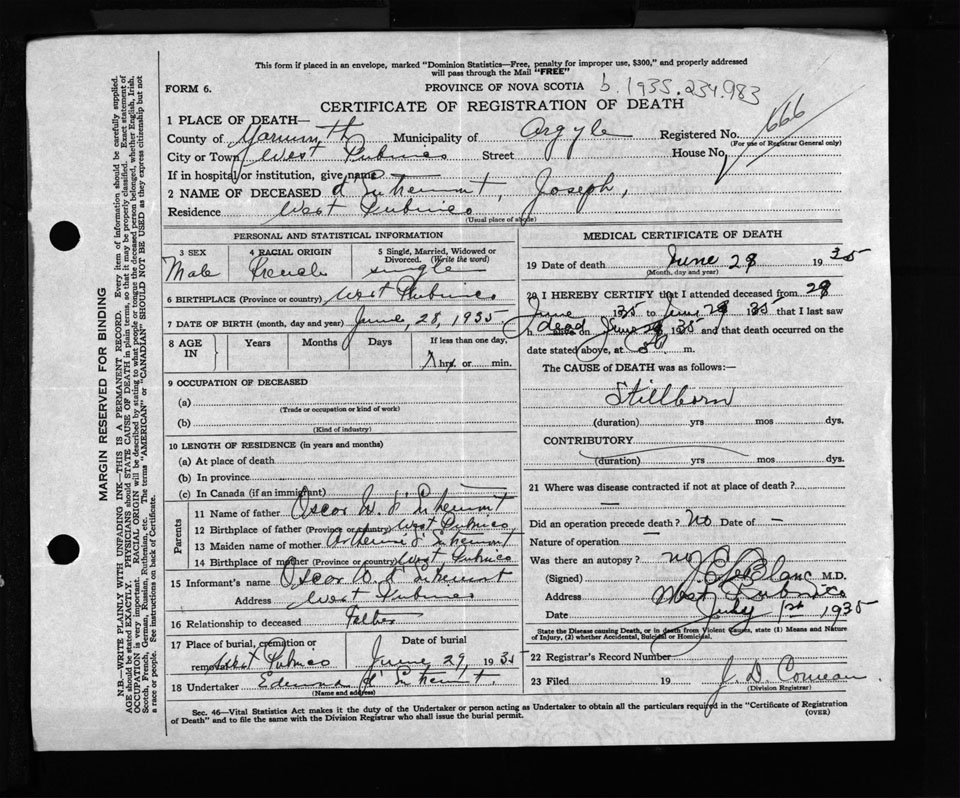 This form if placed in an envelope, marked "Dominion Statistics—Free, penalty for improper use, $300," and properly addressed
will pass through the Mail "FREE"
FORM 6.
PROVINCE OF NOVA SCOTIA b. 1935.234.983
CERTIFICATE OF REGISTRATION OF DEATH
1 PLACE OF DEATH—
County of Yarmouth Municipality of Argyle Registered No. 666
(For use of Registrar General only)
City or Town West Pubnico Street House No.
If in hospital or institution, give name
2 NAME OF DECEASED d'Entremont, Joseph,
Residence West Pubnico
(Usual place of abode)
PERSONAL AND STATISTICAL INFORMATION
3 SEX 4 RACIAL ORIGIN 5 Single, Married, Widowed or
Divorced. (Write the word)
Male French single
6 BIRTHPLACE (Province or country) West Pubnico
7 DATE OF BIRTH (month, day and year) June, 28, 1935
8 AGE IN Years Months Days If less than one day,
hrs. or min.
9 OCCUPATION OF DECEASED
(a)
(Trade or occupation or kind of work)
(b)
(Kind of industry)
10 LENGTH OF RESIDENCE (in years and months)
(a) At place of death
(b) In province
(c) In Canada (if an immigrant)
Parents
11 Name of father Oscar W. d'Entremont
12 Birthplace of father (Province or country) West Pubnico
13 Maiden name of mother d'Entremont
14 Birthplace of mother (Province or country) West Pubnico
15 Informant's name Oscar W. d'Entremont
Address West Pubnico
16 Relationship to deceased Father
17 Place of burial, cremation or Date of burial
removal West Pubnico June 29, 1935
18 Undertaker d'Entremont.
(Name and address)
MEDICAL CERTIFICATE OF DEATH
19 Date of death June 28 1935
(Month, day and year)
20 I HEREBY CERTIFY that I attended deceased from 28
June 1935 to June 28 1935 that I last saw
h dead on June 28 1935 and that death occurred on
date stated above, at m.
The CAUSE of DEATH was as follows:—
Stillborn
(duration) yrs mos dys.
CONTRIBUTORY
(duration) yrs mos dys.
21 Where was disease contracted if not at place of death?
—
Did an operation precede death? No Date of —
Nature of operation —
Was there an autopsy? no
(Signed) J. C. LeBlanc M.D.
Address West Pubnico
Date July 1st 1935
State the Disease causing Death, or in death from Violent Causes, state (1) Means and Nature
of Injury, (2) whether Accidental, Suicidal or Homicidal.
22 Registrar's Record Number
23 Filed 19 J. D. Comeau
(Division Registrar)
Sec. 46—Vital Statistics Act makes it the duty of the Undertaker or person acting as Undertaker to obtain all the particulars required in the "Certificate of Registration
of Death" and to file the same with the Division Registrar who shall issue the burial permit.
(OVER)
MARGIN RESERVED FOR BINDING
N.B.—WRITE PLAINLY WITH UNFADING INK—THIS IS A PERMANENT RECORD. Every item of information should be carefully supplied.
AGE should be stated EXACTLY. PHYSICIANS should STATE CAUSE OF DEATH in plain terms, so that it may be properly classified. Exact statement of
OCCUPATION is very important. RACIAL ORIGIN will be described by stating to what people or tongue the deceased person belonged, whether English, Irish,
Scotch, French, German, Russian, Ruthenian, etc. The terms "AMERICAN" or "CANADIAN" SHOULD NOT BE USED as they express citizenship but not
a race or people. See instructions on back of Certificate.